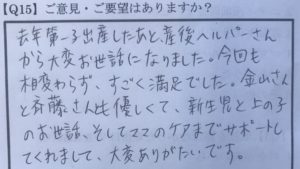 【Q15】ご意見・ご要望はありますか？
去年第一子出産したあと、産後ヘルパーさん
から大変お世話になりました。今回も
相変わらず、すごく満足でした。金山さん
と斉藤さんも優しくて、新生児と上の子
のお世話、そしてママのケアまでサポートし
てくれまして、大変ありがたいです。